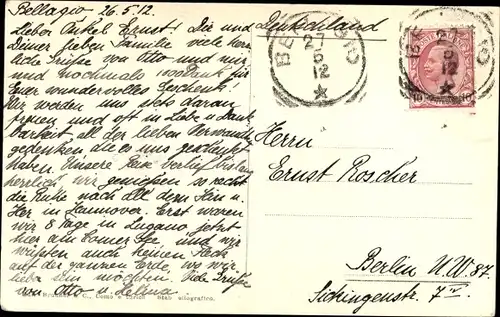 Bellagio 26.5.12.
Lieber Onkel Ernst! Dir und
Deiner lieben Familie viele herz-
liche Grüße von Otto und mir,
und nochmals 1000 Dank für
Euer wundervolles Geschenk!
Wir werden uns stets daran
freuen und oft in Liebe u. Dank-
barkeit all der lieben Verwandten
gedenken die es uns geschenkt
haben. Unsere verlief bislang
herrlich, wir genießen so recht
die Ruhe nach all dem hin u.
her in Hannover. Erst waren
wir 8 Tage in Lugano jetzt
hier am Comer See, und wir
wüßten auch keinen Fleck
auf der ganzen Erde, wo wir
lieber sein möchten. Viele Grüße
von Otto u.
Deutschland
Herrn
Ernst Roscher
Berlin N.W. 87.
Sickingenstr. 7
Como e Zürich Stab. allegrafico.